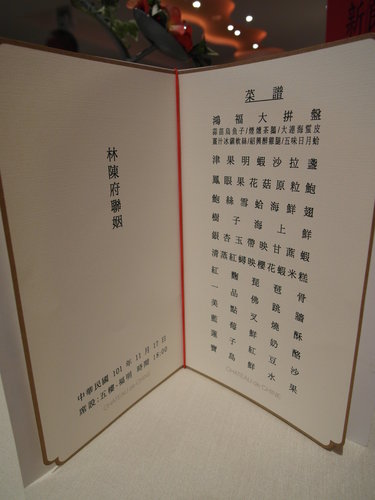 林陳府聯姻
中華民國 101 年 11 月 17 日
席設:五樓‧福明 時間 18:00
CHATEAU de CHINE
菜 譜
鴻福大拼盤
蒜苗烏魚子/煙燻茶鵝/大連海蜇皮
薑汁冰鎮軟絲/紹興醉雞腿/五味日月蛤
津果明蝦沙拉盞
鳳眼果花菇原粒鮑
鮑絲雪蛤海鮮翅
樹子海上鮮
銀杏玉帶映甘蒸蝦
清蒸紅蟳映櫻花蝦米糕
紅麴琵琶骨
一品佛跳牆
美點叉燒酥
藍莓鮮奶酪
蓮子紅豆沙
寶島鮮水果
CHATEAU de CHINE